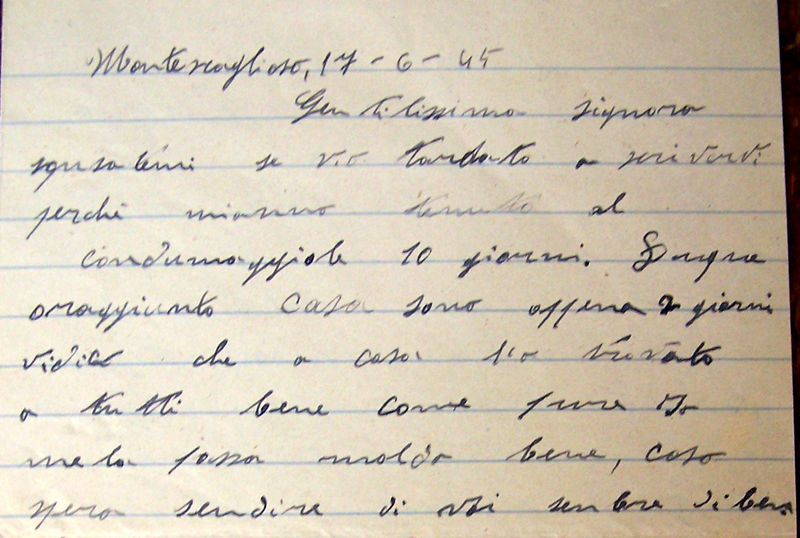 Montescaglioso, 17-6-45
Gentilissima signora
squsatemi se vio tardato a scrivervi
perchè mianno tenuto al
condumaggiole 10 giorni. Dunque
oraggiunto casa sono appena 2 giorni
vidico che a casa l'o trovato
a tutti bene come pure Io
me la passa moldo bene, caso
spero sendire di voi senbre di bene